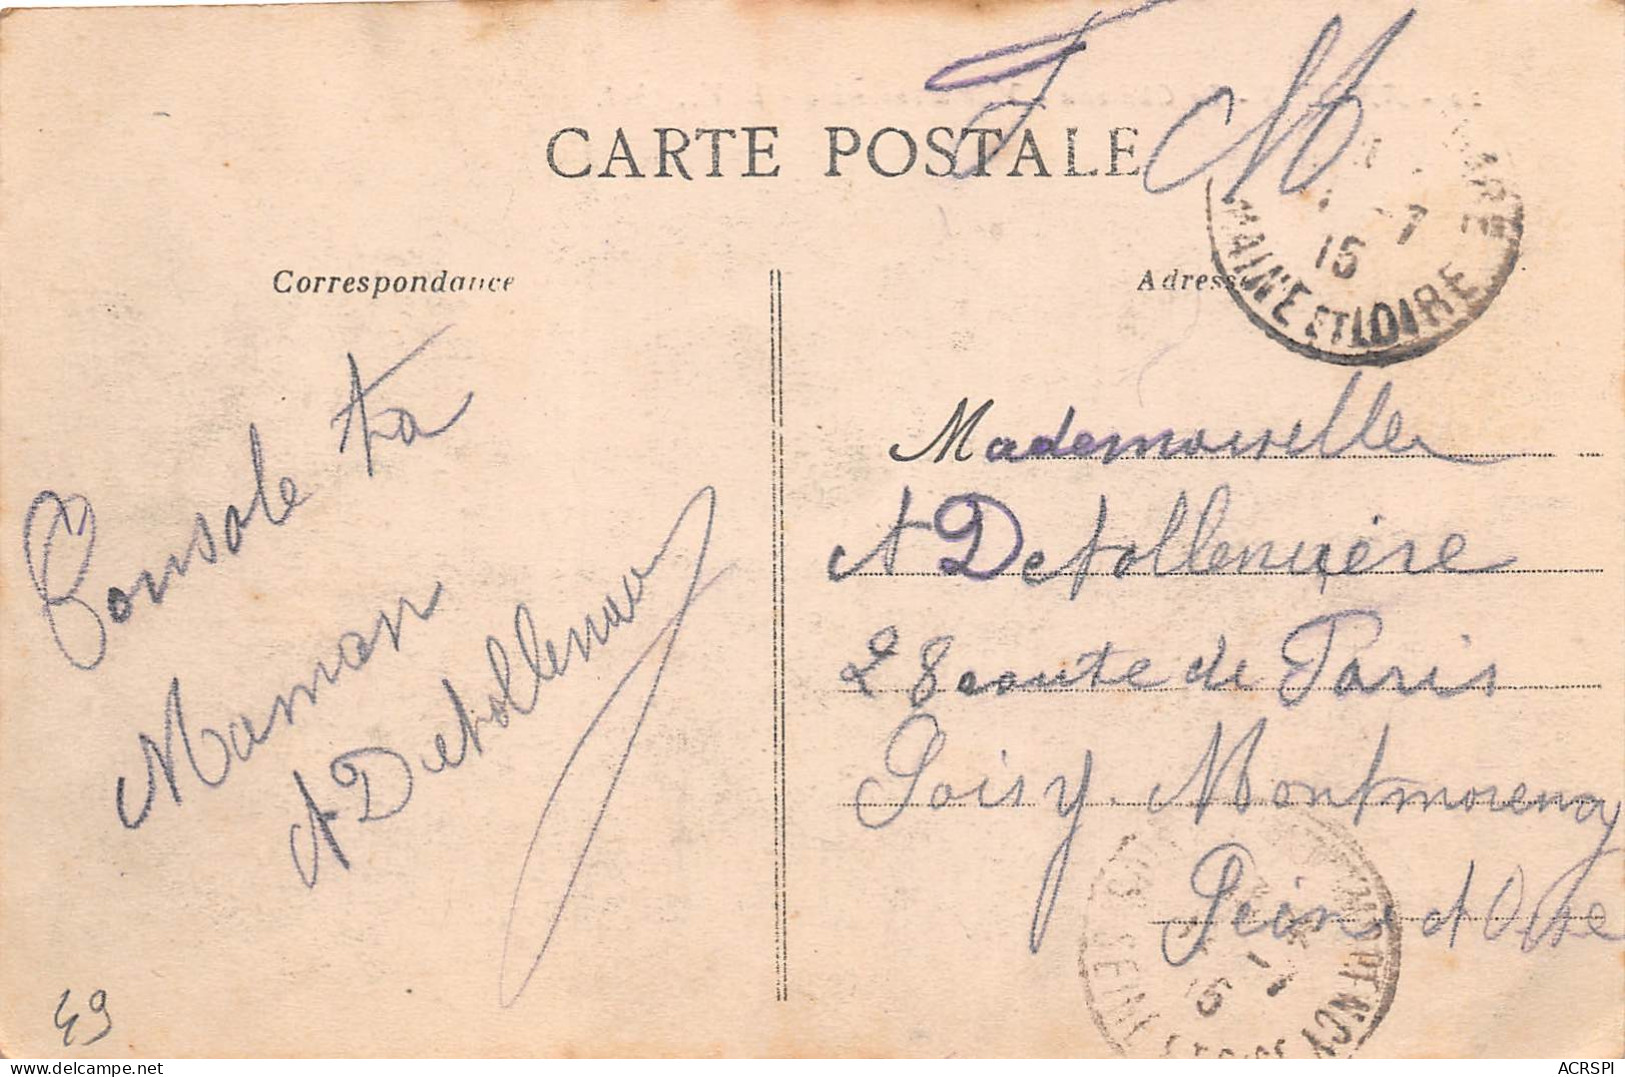 F M
CARTE POSTALE
Correspondance
Adresse
15 -7
MAINE ET LOIRE
Console ta
Maman
A Detollenaere
Mademoiselle
A Detollenaere
28 route de Paris
Soisy. Montmorency
Seine et Oise
MONTMORENCY
15 -7
SEINE ET OISE
49
ACRSPI